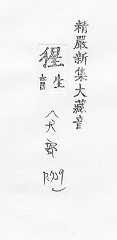 精嚴新集大藏音
猩 生音
犬部
P.929